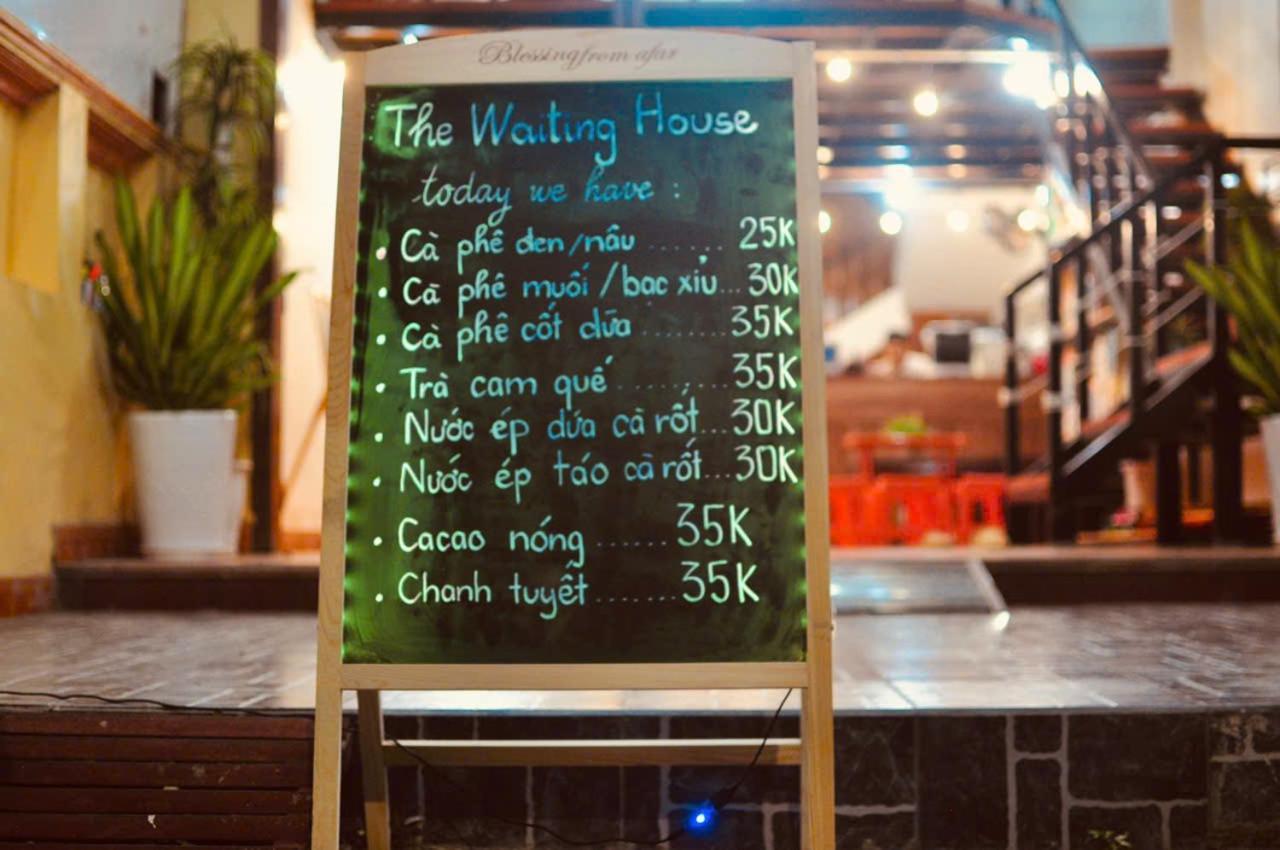 Blessing from afar
The Waiting House
today we have :
• Cà phê đen/nâu ....... 25K
• Cà phê muối /bạc xỉu... 30K
• Cà phê cốt dừa ........ 35K
• Trà cam quế ......... 35K
• Nước ép dứa cà rốt... 30K
• Nước ép táo cà rốt... 30K
• Cacao nóng ...... 35K
• Chanh tuyết ....... 35K